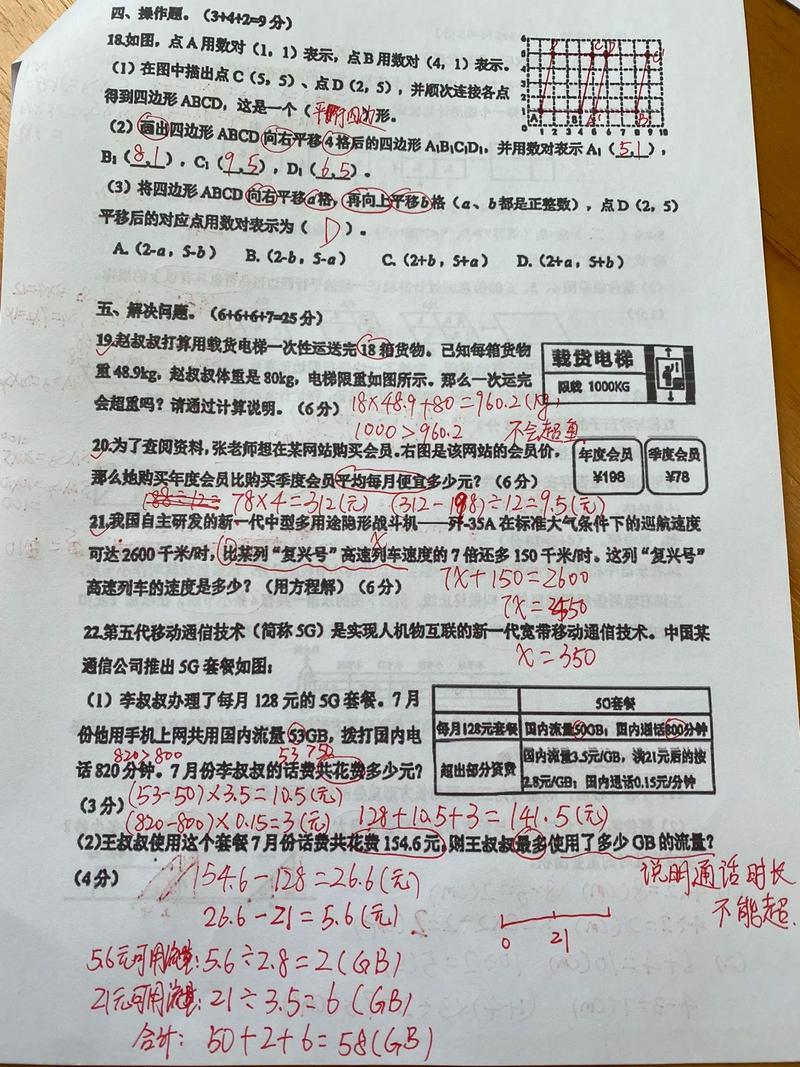 四、操作题。（3+4+2=9分）
18.如图，点A用数对（1，1）表示，点B用数对（4，1）表示。
（1）在图中描出点C（5，5）、点D（2，5），并顺次连接各点
得到四边形ABCD，这是一个（平行四边形。
（2）画出四边形ABCD向右平移4格后的四边形A₁B₁C₁D₁，并用数对表示A₁（5,1），
B₁（8,1），C₁（9,5），D₁（6,5）。
（3）将四边形ABCD向右平移a格，再向上平移b格（a、b都是正整数），点D（2，5）
平移后的对应点用数对表示为（D）。
A.（2-a，5-b） B.（2-b，5-a） C.（2+b，5+a） D.（2+a，5+b）
6
5
4
3
2
A B A₁ B₁
1 2 3 4 5 6 7 8 9 10
五、解决问题。（6+6+6+7=25分）
19.赵叔叔打算用载货电梯一次性运送完18箱货物。已知每箱货物
重48.9kg，赵叔叔体重是80kg，电梯限重如图所示。那么一次运完
会超重吗？请通过计算说明。（6分）
载货电梯
限载 1000KG
18×48.9+80=960.2(kg)
1000>960.2 不会超重
20.为了查阅资料，张老师想在某网站购买会员。右图是该网站的会员价，
那么她购买年度会员比购买季度会员平均每月便宜多少元？（6分）
年度会员 ¥198
季度会员 ¥78
78×4=312(元) (312-198)÷12=9.5(元)
21.我国自主研发的新一代中型多用途隐形战斗机——歼-35A在标准大气条件下的巡航速度
x
可达2600千米/时，比某列“复兴号”高速列车速度的7倍还多150千米/时。这列“复兴号”
高速列车的速度是多少？（用方程解）（6分）
7x+150=2600
7x=2450
x=350
22.第五代移动通信技术（简称5G）是实现人机物互联的新一代宽带移动通信技术。中国某
通信公司推出5G套餐如图：
（1）李叔叔办理了每月128元的5G套餐。7月
份他用手机上网共用国内流量53GB，拨打国内电
820>800 53>50
话820分钟。7月份李叔叔的话费共花费多少元？
（3分）
5G套餐
每月128元套餐 国内流量50GB；国内通话800分钟
超出部分资费 国内流量3.5元/GB，满21元后的按
2.8元/GB；国内通话0.15元/分钟
(53-50)×3.5=10.5(元)
(820-800)×0.15=3(元) 128+10.5+3=141.5(元)
（2）王叔叔使用这个套餐7月份话费共花费154.6元，则王叔叔最多使用了多少GB的流量？
（4分）
说明通话时长
不能超.
154.6-128=26.6(元)
26.6-21=5.6(元)
0 21
5.6元可用流量：5.6÷2.8=2(GB)
21元可用流量：21÷3.5=6(GB)
合计：50+2+6=58(GB)